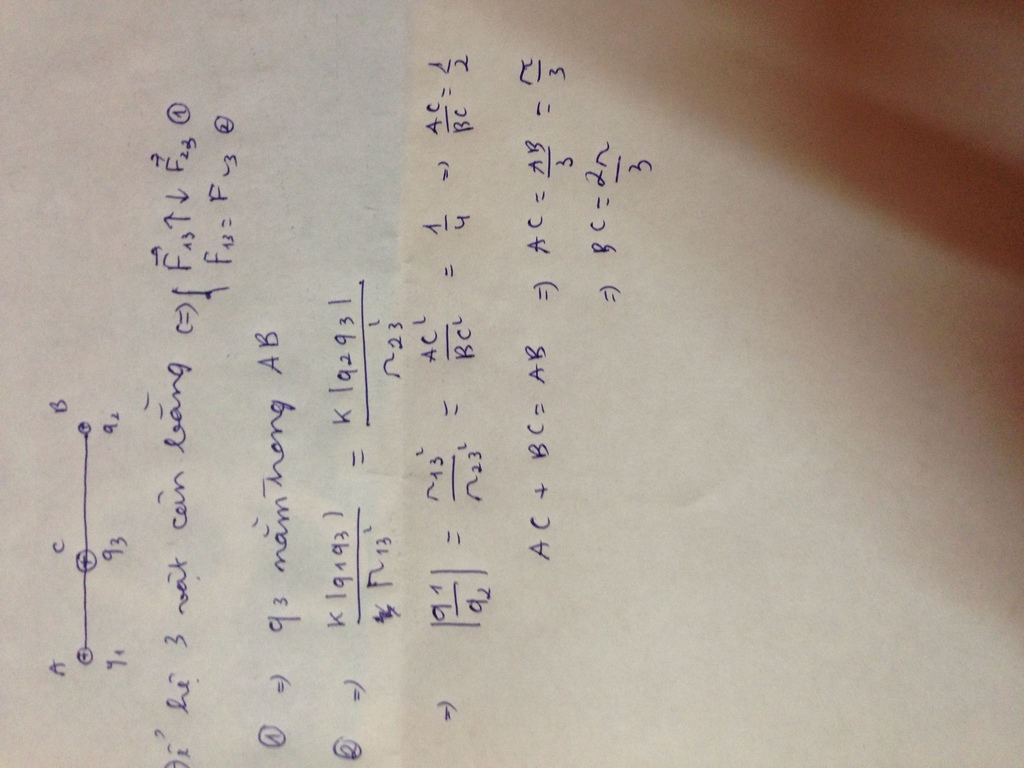 A C B
q₁ q₃ q₂
Để hệ 3 vật cân bằng (=) { F⃗₁₃ ↑↓ F⃗₂₃ ①
F₁₃ = F₂₃ ②
① => q₃ nằm trong AB
② => K|q₁q₃| / r₁₃² = K|q₂q₃| / r₂₃²
=> |q₁/q₂| = r₁₃²/r₂₃² = AC²/BC² = 1/4 => AC/BC = 1/2
AC + BC = AB => AC = AB/3 = r/3
=> BC = 2r/3